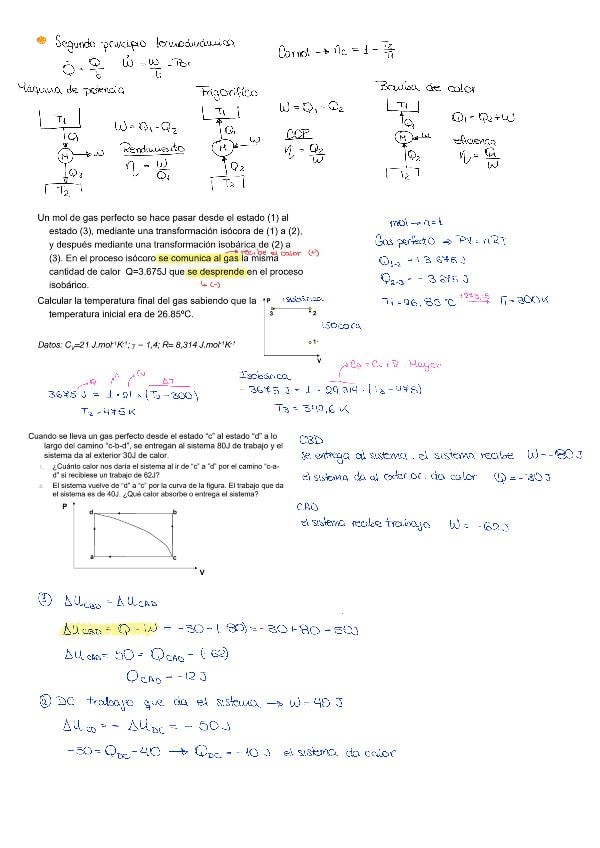 Segundo principio termodinámica
Carnot → ηc = 1 - T2/T1
Q̇ = Q/t Ẇ = W/t = Pot
Máquina de potencia
T1
Q1
M → W
Q2
T2
W = Q1 - Q2
Rendimiento
η = W/Q1
Frigorífico
T1
Q1
M ← W
Q2
T2
W = Q1 - Q2
COP
η = Q2/W
Bomba de calor
T1
Q1
M ← W
Q2
T2
Q1 = Q2 + W
eficiencia
η = Q1/W
Un mol de gas perfecto se hace pasar desde el estado (1) al
estado (3), mediante una transformación isócora de (1) a (2),
y después mediante una transformación isobárica de (2) a
→ recibe el calor (+)
(3). En el proceso isócoro se comunica al gas la misma
cantidad de calor Q=3.675J que se desprende en el proceso
isobárico.
↳ (-)
Calcular la temperatura final del gas sabiendo que la
temperatura inicial era de 26.85ºC.
Datos: CV=21 J.mol-1K-1; γ = 1,4; R= 8,314 J.mol-1K-1
mol → n=1
Gas perfecto ⇒ PV = nRT
Q1-2 = +3675J
Q2-3 = - 3675J
T1 = 26,85 ºC +273,15 → T1 = 300K
P
isobárica
3
2
isócora
1
V
Q n Cv ΔT
3675 J = 1 · 21 · (T2 - 300)
T2 = 475 K
Isobárica
→ Cp = Cv + R · Mayer
- 3675 J = 1 · 29,314 · (T3 - 475)
T3 = 349,6 K
Cuando se lleva un gas perfecto desde el estado "c" al estado "d" a lo
largo del camino "c-b-d", se entregan al sistema 80J de trabajo y el
sistema da al exterior 30J de calor.
1. ¿Cuánto calor nos daría el sistema al ir de "c" a "d" por el camino "c-a-
d" si recibiese un trabajo de 62J?
2. El sistema vuelve de "d" a "c" por la curva de la figura. El trabajo que da
el sistema es de 40J. ¿Qué calor absorbe o entrega el sistema?
P
d
b
a
c
V
CBD
se entrega al sistema. el sistema recibe W = -80J
el sistema da al exterior. da calor Q = -30J
CAD
el sistema recibe trabajo W = -62J
① ΔUCBD = ΔUCAD
ΔUCBD = Q - W = -30 - (-80) = -30 + 80 = 50J
ΔUCAD = 50 = QCAD - (-62)
QCAD = -12J
② DC trabajo que da el sistema → W = 40 J
ΔUCD = - ΔUDC = - 50J
-50 = QDC - 40 → QDC = -10J el sistema da calor